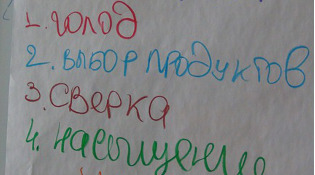 1. голод
2. выбор продуктов
3. сверка
4. насыщение